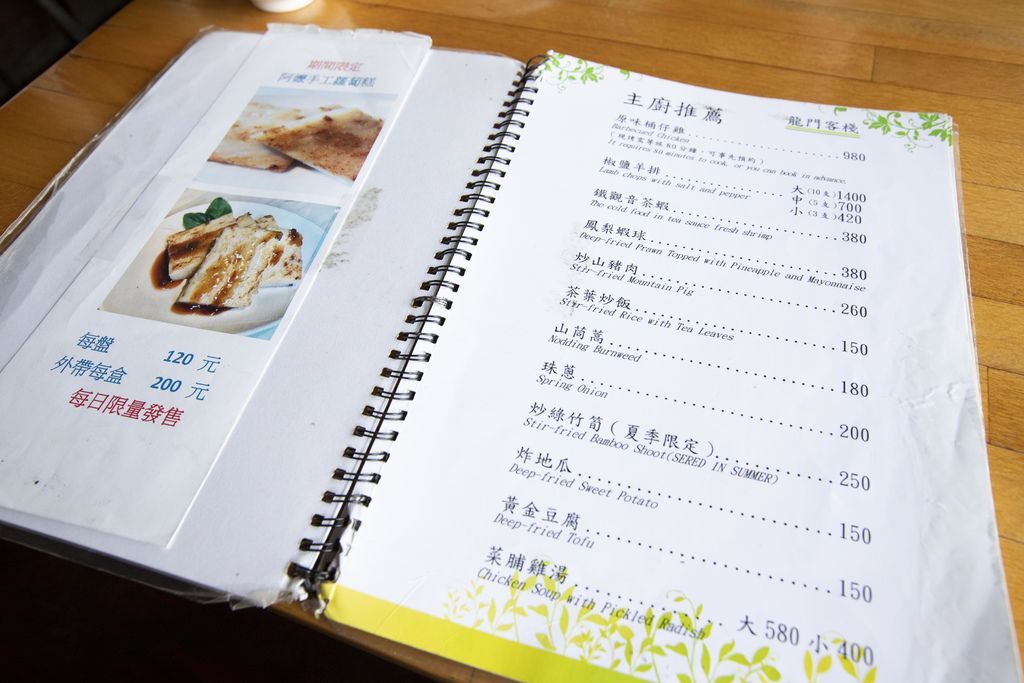 期間限定
阿嬤手工蘿蔔糕
每盤 120 元
外帶每盒 200 元
每日限量發售
主廚推薦
龍門客棧
原味桶仔雞 980
Barbecued Chicken
(現烤需等候80分鐘,可事先預約)
It requires 80 minutes to cook, or you can book in advance.
椒鹽羊排 大(10支)1400
Lamb chops with salt and pepper 中(5支)700
小(3支)420
鐵觀音茶蝦 380
The cold food in tea sauce fresh shrimp
鳳梨蝦球 380
Deep-fried Prawn Topped with Pineapple and Mayonnaise
炒山豬肉 260
Stir-fried Mountain Pig
茶葉炒飯 150
Stir-fried Rice with Tea Leaves
山茼蒿 180
Nodding Burnweed
珠蔥 200
Spring Onion
炒綠竹筍(夏季限定) 250
Stir-fried Bamboo Shoot(SERED IN SUMMER)
炸地瓜 150
Deep-fried Sweet Potato
黃金豆腐 150
Deep-fried Tofu
菜脯雞湯 大 580 小 400
Chicken Soup with Pickled Radish